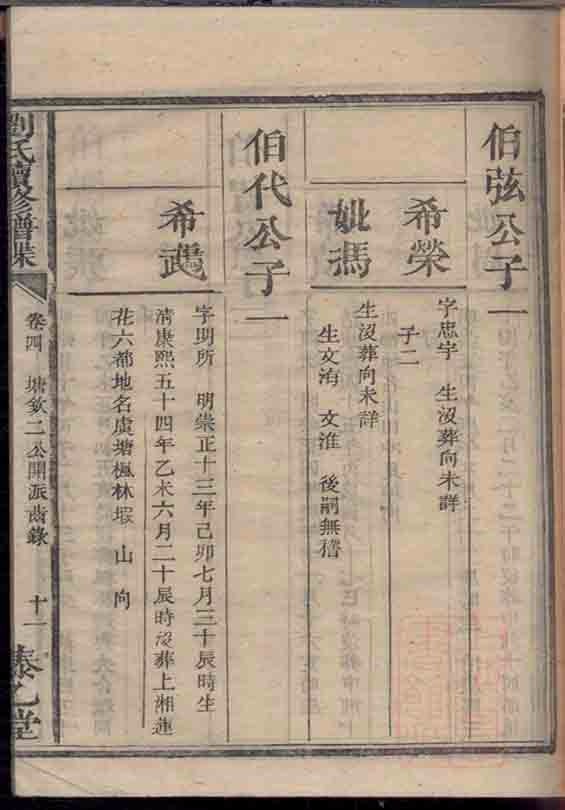 伯弦公子一
希榮
字忠宇 生沒葬向未詳
子二
妣馮
生沒葬向未詳
生文洧 文淮 後嗣無稽
伯代公子一
希鵡
字明所 明崇正十三年己卯七月三十辰時生
清康熙五十四年乙未六月二十辰時沒葬上湘蓮
花六都地名虞塘楓林塅 山 向
劉氏續修譜牒
卷四 塘欽二公開派齒錄
十一
泰乙堂